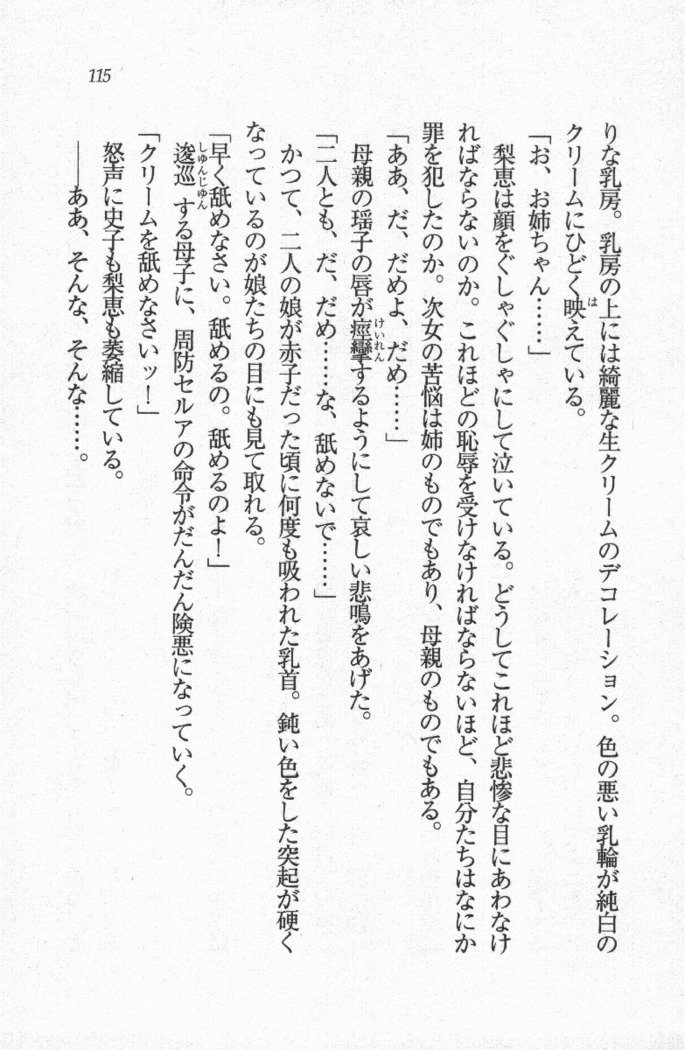 115
りな乳房。乳房の上には綺麗な生クリームのデコレーション。色の悪い乳輪が純白の
クリームにひどく映えている。
「お、お姉ちゃん……」
梨恵は顔をぐしゃぐしゃにして泣いている。どうしてこれほど悲惨な目にあわなけ
ればならないのか。これほどの恥辱を受けなければならないほど、自分たちはなにか
罪を犯したのか。次女の苦悩は姉のものでもあり、母親のものでもある。
「ああ、だ、だめよ、だめ……」
母親の瑶子の唇が痙攣するようにして哀しい悲鳴をあげた。
「二人とも、だ、だめ……な、舐めないで……」
かつて、二人の娘が赤子だった頃に何度も吸われた乳首。鈍い色をした突起が硬く
なっているのが娘たちの目にも見て取れる。
「早く舐めなさい。舐めるの。舐めるのよ！」
逡巡する母子に、周防セルアの命令がだんだん険悪になっていく。
「クリームを舐めなさいッ！」
怒声に史子も梨恵も萎縮している。
――ああ、そんな、そんな……。